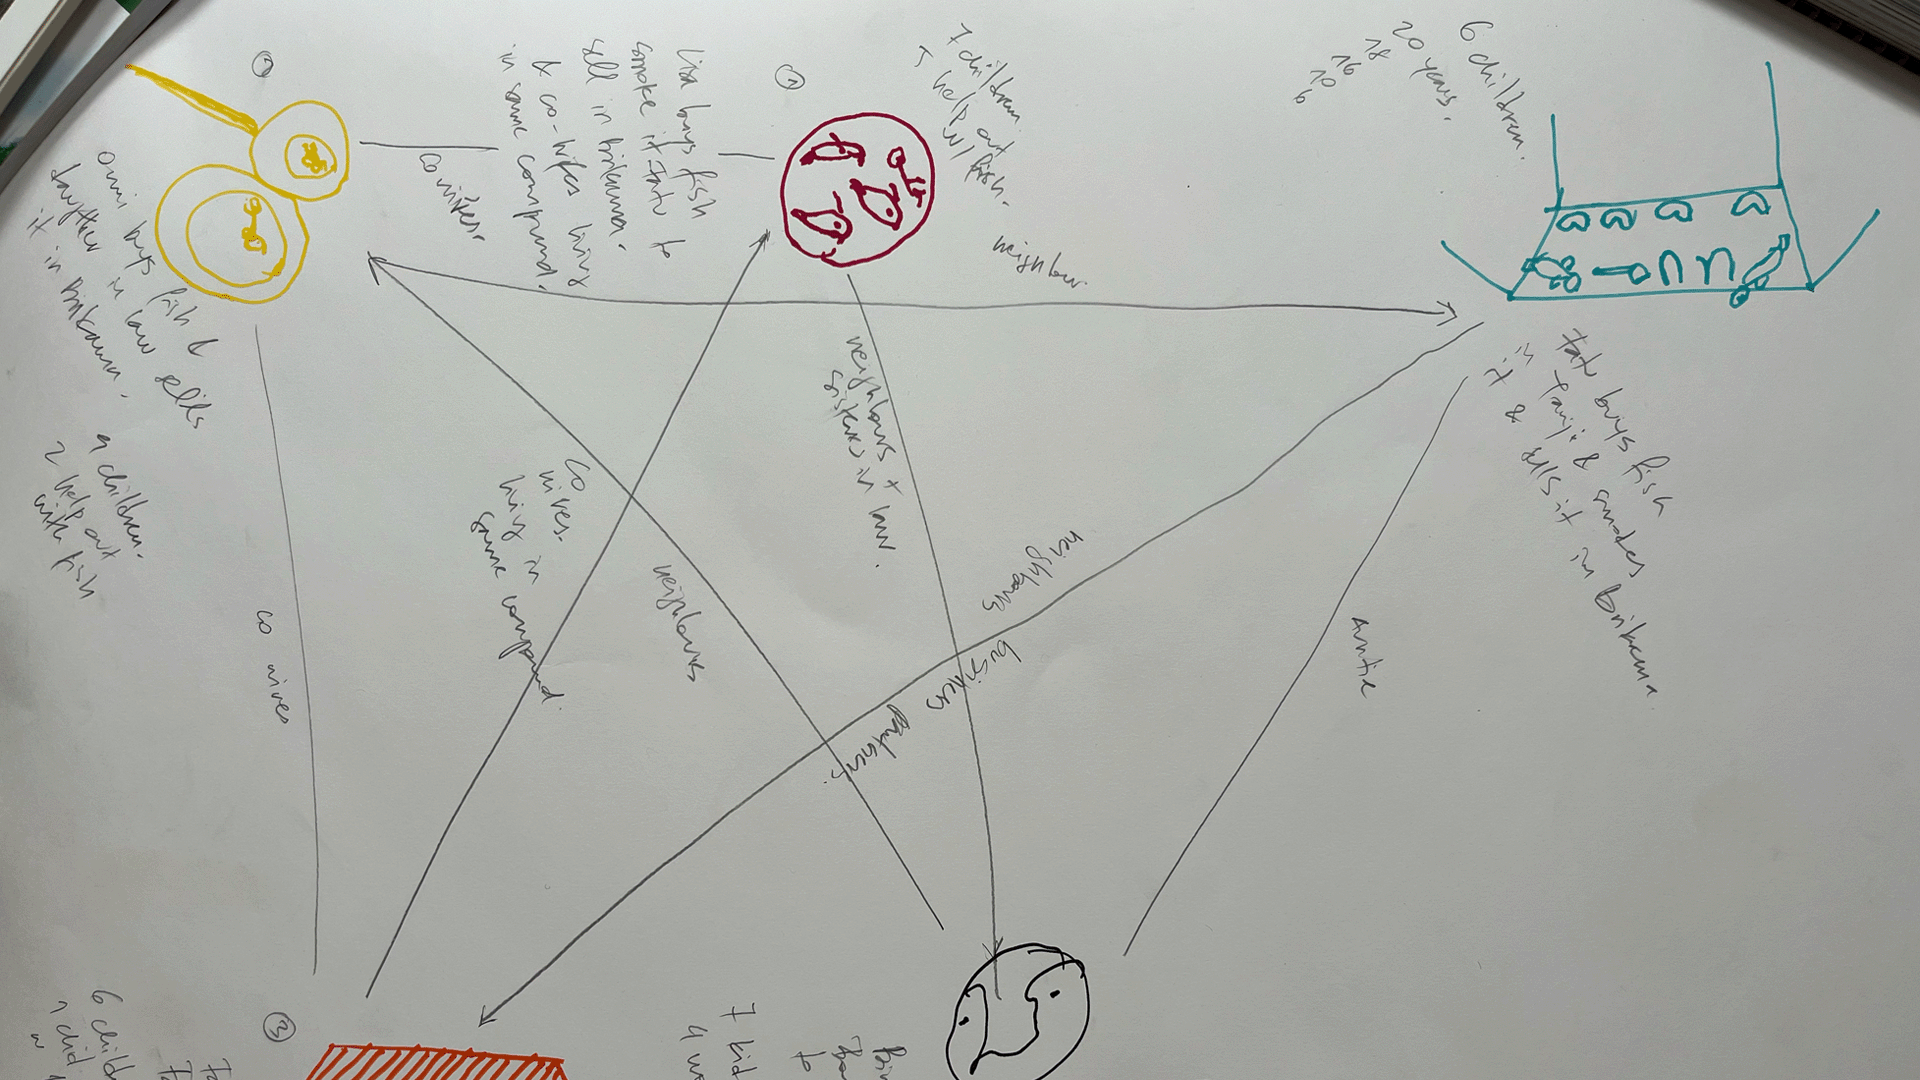 1
Oumi buys fish &
daughter in law sells
it in Brikama.
9 children.
2 help out
with fish
co wives.
Lisa buys fish
smoke it Fatu to
sell in Brikama.
& co-wifes living
in same compound.
2
7 children
5 help out
w/ fish.
neighbour
6 children.
20 years.
18
16
10
6
Fatu buys fish
in Tanji & smokes
it & sells it in Brikama
co wives
Co
wives.
living in
same compound.
neighbours
neighbours +
sisters in law.
neighbours
business
partners.
Auntie
3
6 children
7 kid
4
to